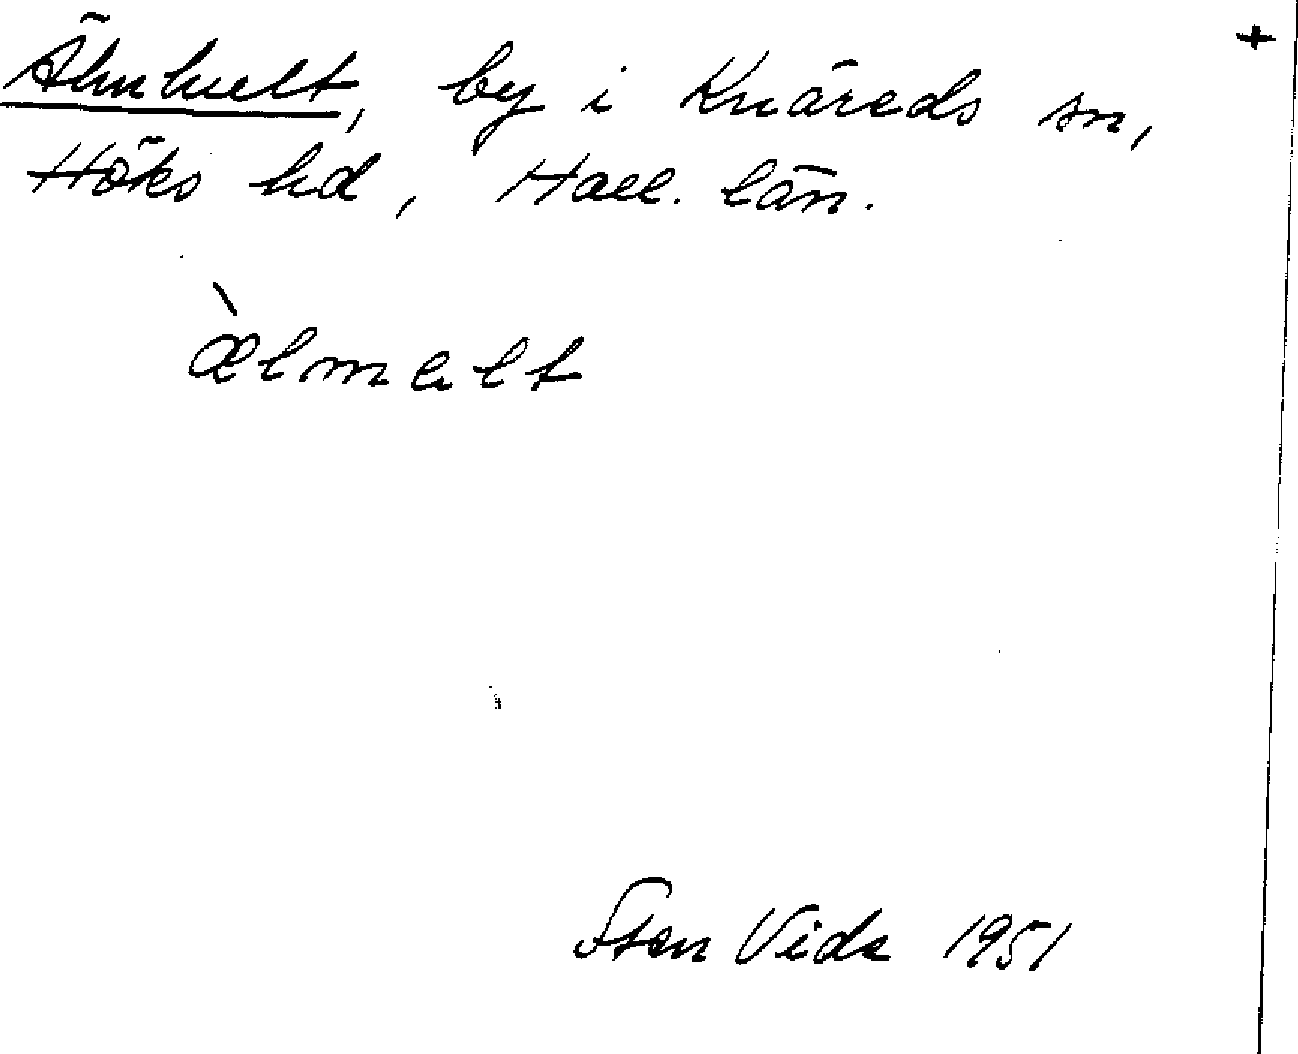 +
Älmhult, by i Knäreds sn,
Höks hd, Hall. län.
æ̀lmalt
Sten Vide 1951